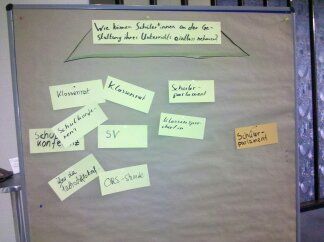 Wie können Schüler*innen an der Ge-
staltung ihres Unterrichts Einfluss nehmen?
Klassenrat
Klassenrat
Schüler-
parlament
Schulkonferenz
Schul
konfe
SV
Klassenspre-
cher/in
Schüler-
parlament
ORS-Stunde